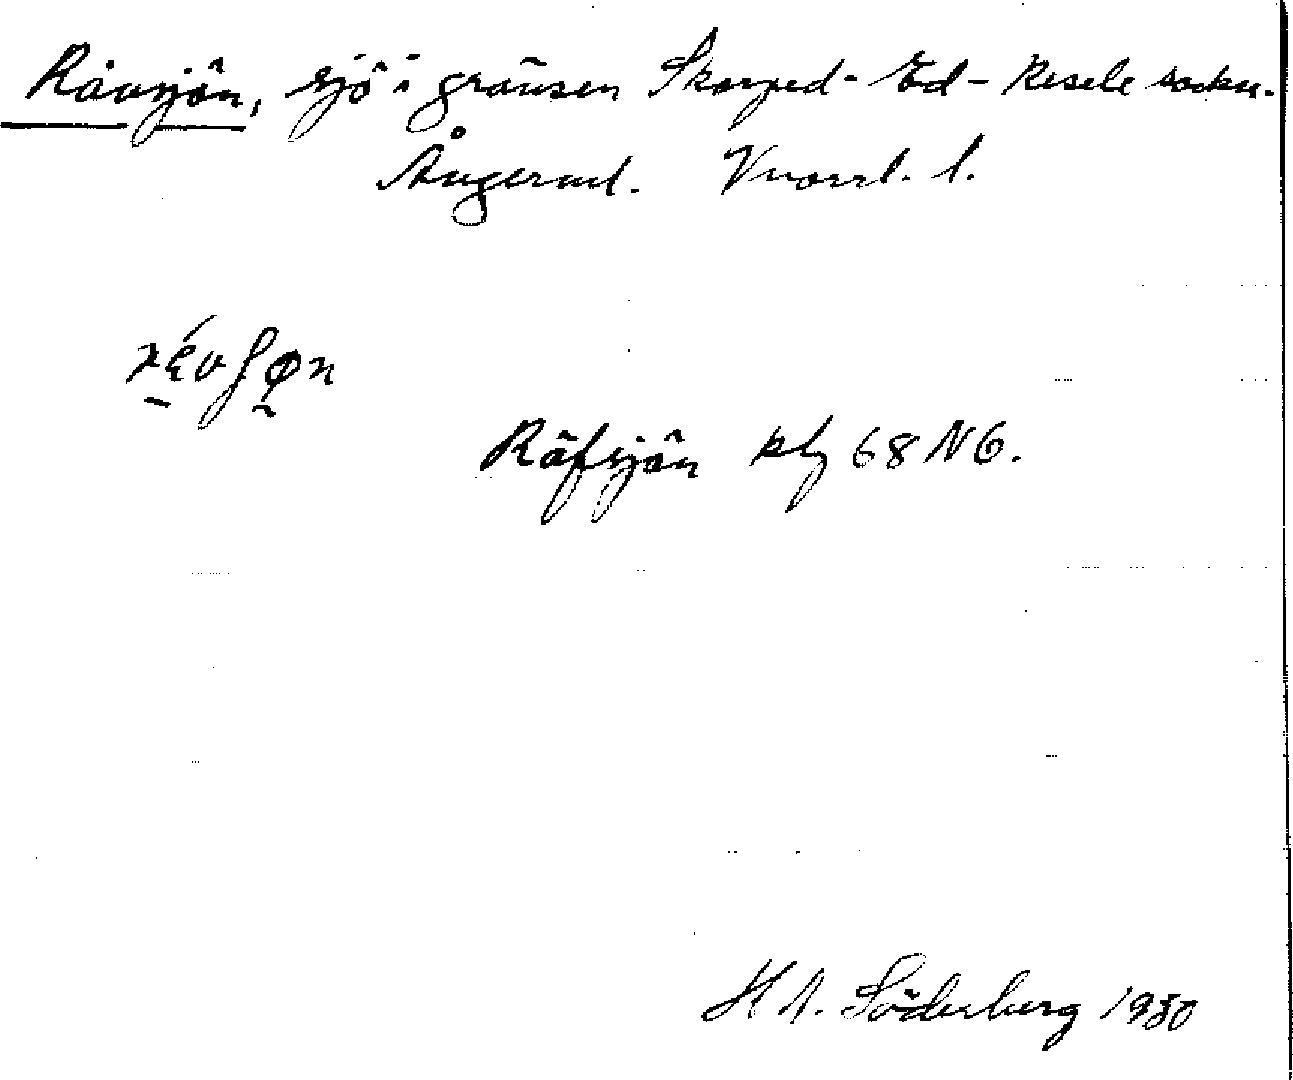 Rävsjön, sjö i gränsen Skorped - Ed - Resele sockn.
Ångerml. Vnorrl. l.
Räfsjön kbl 68 N6.
H A. Söderberg 1930